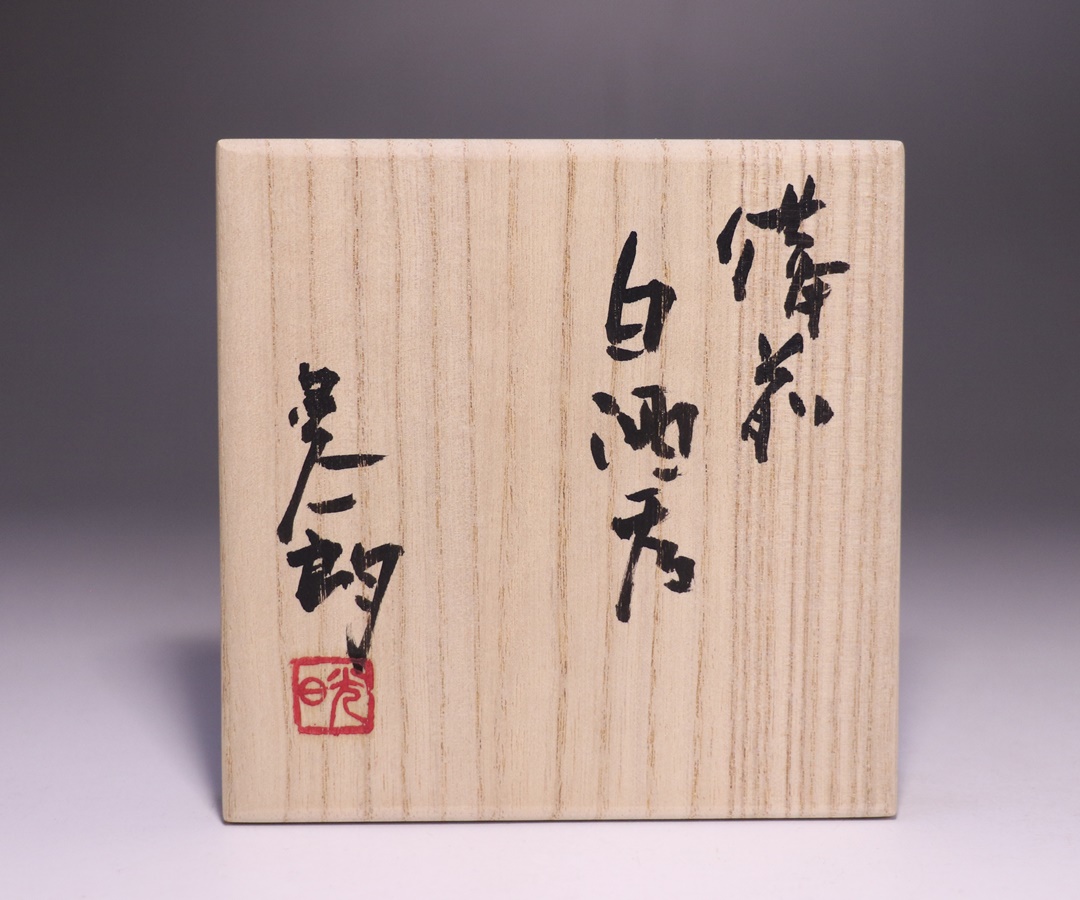 備前
白酒呑
晃一郎
晄